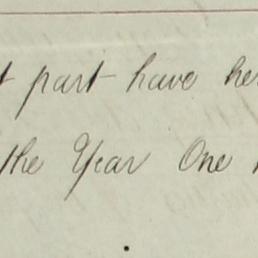 part have
the Year One